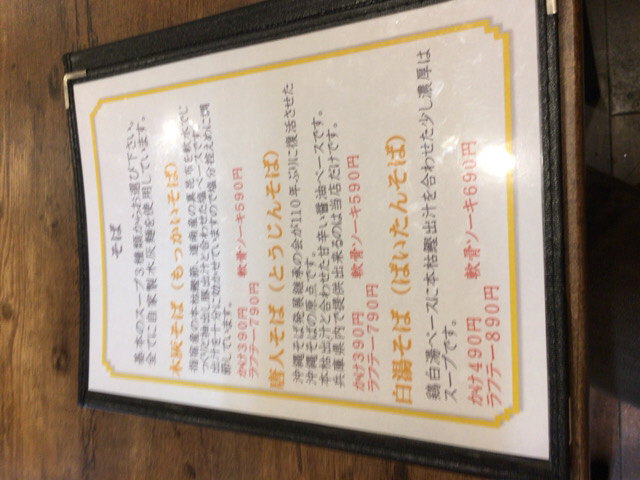 そば
基本のスープ3種類からお選び下さい。
全てに自家製木灰麺を使用しています。
木灰そば（もっかいそば）
指宿産の本枯鰹節、道南産の真昆布を軟水で
出汁を十分に効かせていますので塩分控えめに調
節しています。
かけ390円 軟骨ソーキ590円
ラフテー790円
唐人そば（とうじんそば）
沖縄そば発展継承の会が110年ぶりに復活させた
沖縄そばの原点です。
本枯出汁と合わせた甘辛い醤油ベースです。
兵庫県内で提供出来るのは当店だけです。
かけ390円 軟骨ソーキ590円
ラフテー790円
白湯そば（ぱいたんそば）
鶏白湯ベースに本枯鰹出汁を合わせた少し濃厚な
スープです。
かけ490円 軟骨ソーキ690円
ラフテー890円